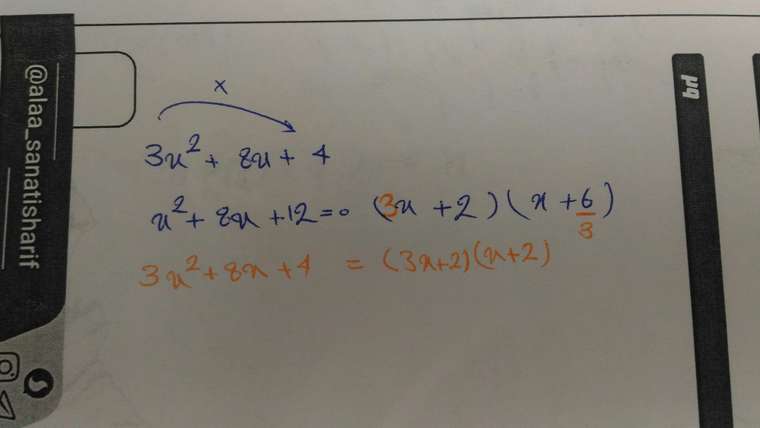 @alaa_sanatisharif
x
3x² + 8x + 4
x² + 8x + 12 = 0 (3x + 2)(x + 6/3)
3x² + 8x + 4 = (3x+2)(x+2)